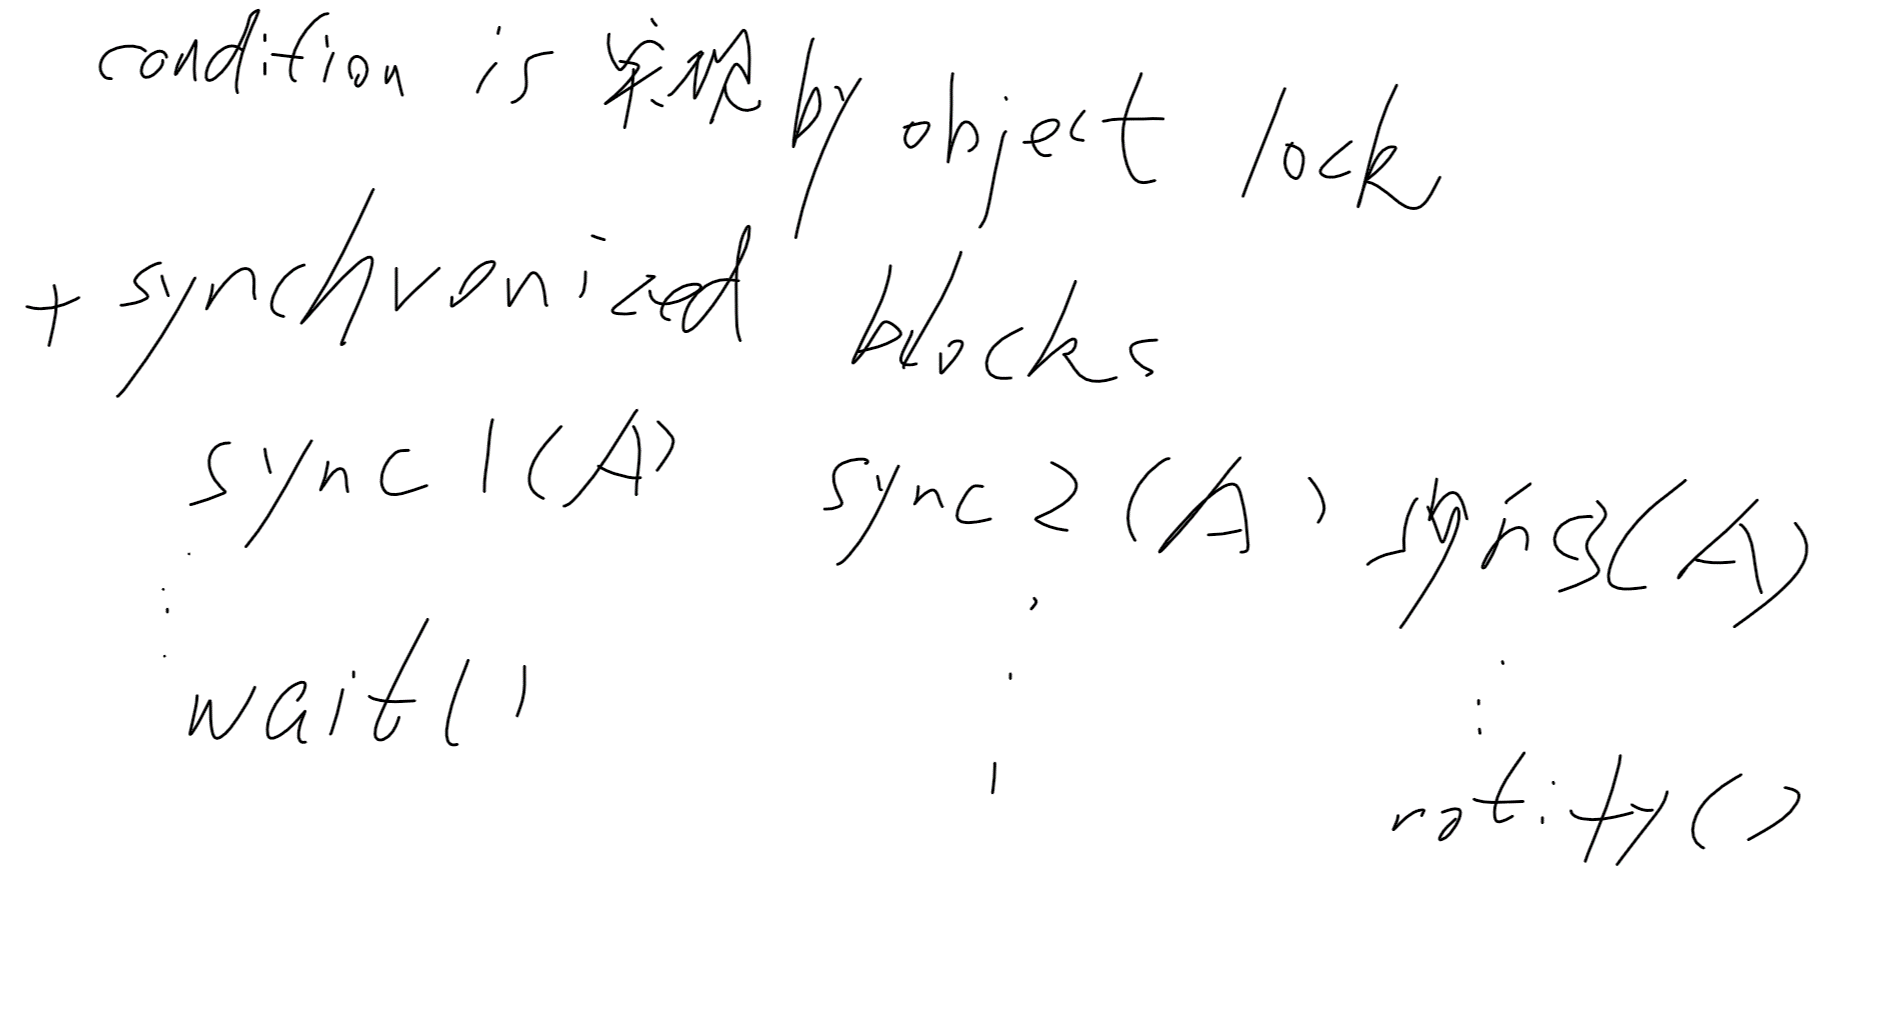 condition is 实现 by object lock
+ synchronized blocks
sync1(A) sync2(A) sync3(A)
wait()
notify()